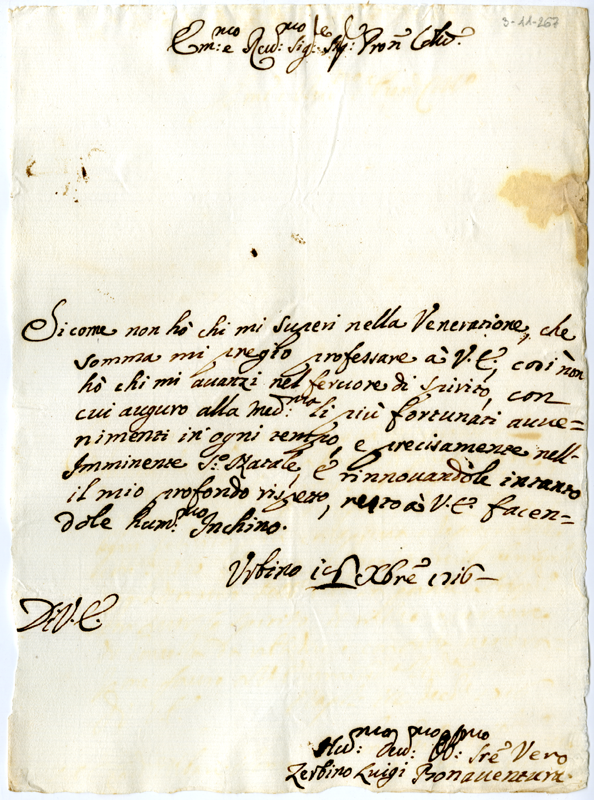 3-11-267
Em:mo e Rev:mo Sig:re Sig: Pron Col:mo
Sicome non hò chi mi superi nella Venerazione, che
somma mi preggio professare à V. E., così non
hò chi mi auanzi nel feruore di spirito, con
cui auguro alla med:ma li più fortunati auue=
nimenti in ogni tempo, e precisamente nell'
Imminente S:o Natale, è rinnouandole intanto
il mio profondo rispetto, resto à V. E. facen=
dole hum:mo Inchino.
Urbino Xbre 1716
Di V. E.
Hu:mo Deu:mo Ob:mo Sre Vero
Zerbino Luigi Bonauentura